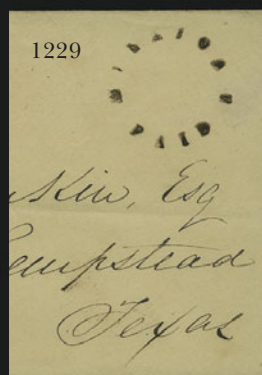 1229
PAID
skin, Esq
empstead
Texas